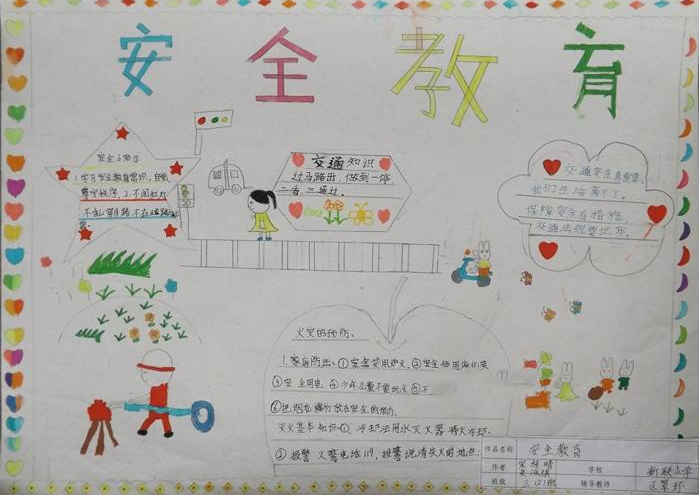 安全教育
安全与指示
1.学习安全教育常识,自觉
遵守秩序,2.不闯红灯
不乱穿马路不在道路
交通知识
过马路出,做到一停
二看,三通过。
交通安全真重要,
我们生活离不了。
保障安全有措施,
交通法规要记牢。
火灾的预防、
1.家庭防火:①安全使用炉火,②安全使用液化
③安全用电 ④少年儿童不要玩火⑤不
⑥把烟花爆竹放在安全的地方
灭火基本知识①冷却法用水灭火器将火冷却.
②报警 火警电话119,报警说清失火的地点:
作品名称 安全教育
作者 学校
班级 三(2)班 辅导教师